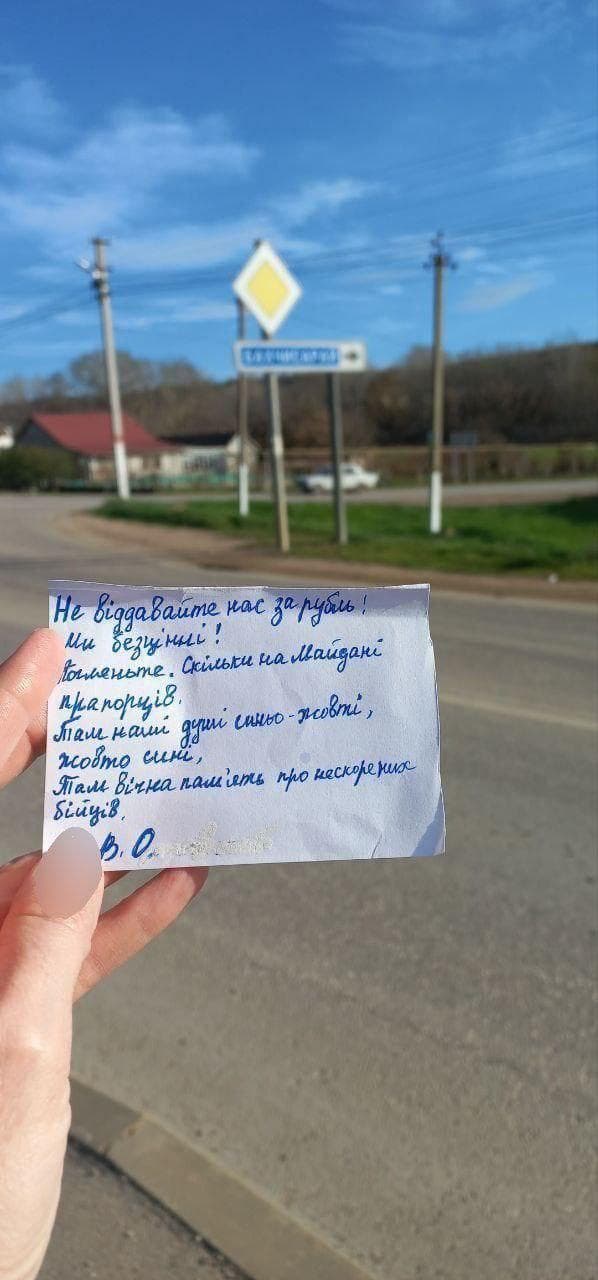 БАХЧИСАРАЙ
Не віддавайте нас за рубль!
Ми безцінні!
Гляньте. Скільки на Майдані
прапорців.
Там наші душі синьо-жовті,
жовто сині,
Там вічна пам'ять про нескорених
бійців.
В. О.